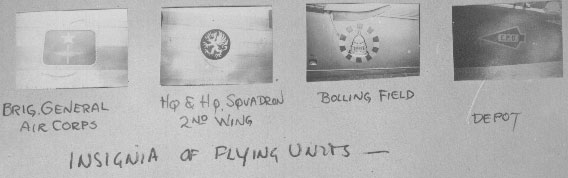 BRIG. GENERAL
AIR CORPS
HQ & HQ. SQUADRON
2ND WING
BOLLING FIELD
DEPOT
INSIGNIA OF FLYING UNITS —